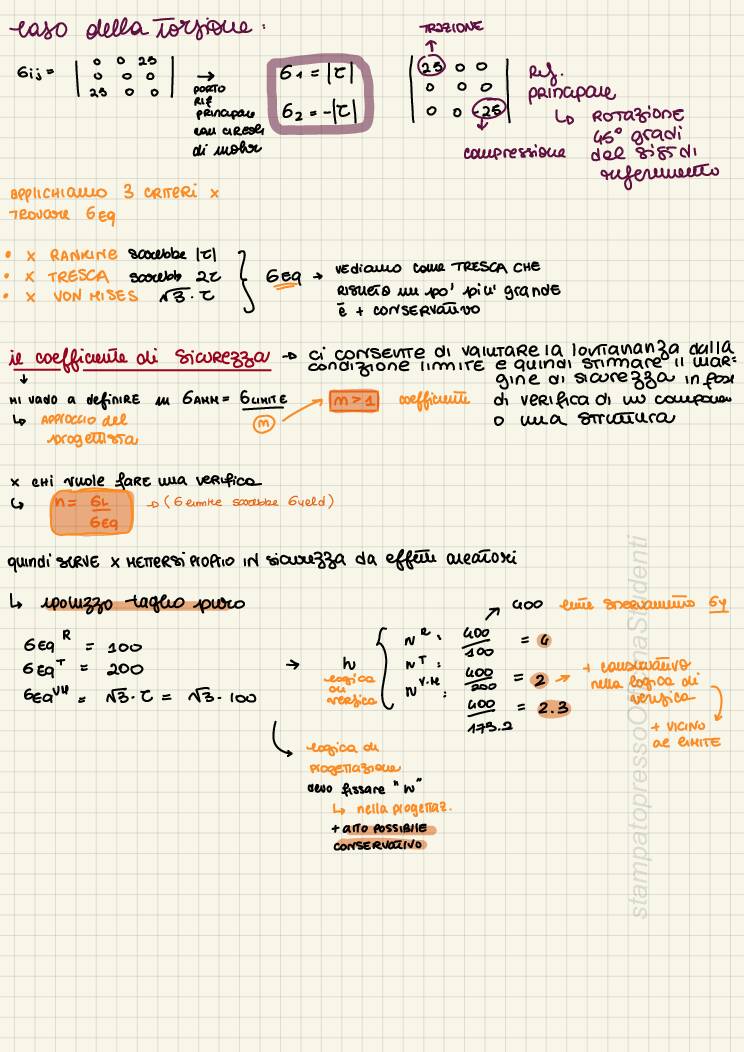 caso della torsione:
σij = | 0 0 25 |
| 0 0 0 |
| 25 0 0 |
→ PORTO
RIF
PRINCIPALE
CON CERCHI
di mohr
σ1 = |τ|
σ2 = -|τ|
TRAZIONE
↑
| 25 0 0 |
| 0 0 0 |
| 0 0 -25 |
compressione
Rif.
principale
↳ ROTAZIONE
45° gradi
del sist di
riferimento
APPLICHIAMO 3 CRITERI x
TROVARE σEQ
• x RANKINE sarebbe |τ|
• x TRESCA sarebb 2τ
• x VON MISES √3 · τ
σEQ → VEDIAMO come TRESCA CHE
RISULTA un po' più grande
è + CONSERVATIVO
il coefficiente di SICUREZZA → CI CONSENTE DI VALUTARE LA LONTANANZA DALLA
CONDIZIONE LIMITE E QUINDI STIMARE IL MAR-
GINE DI SICUREZZA in fase
DI VERIFICA DI UN COMPONEN
O UNA STRUTTURA
↓
MI VADO A DEFINIRE un σAMM = σLIMITE
m
→ m > 1 coefficiente
↳ APPROCCIO del
progettista
x CHI VUOLE FARE UNA VERIFICA
↳ n = σL
σEQ
→ (σ limite sarebbe σyeld)
quindi SERVE x METTERSI PROPRIO IN SICUREZZA da effetti aleatori
↳ ipotizzo taglio puro
σEQ^R = 100
σEQ^T = 200
σEQ^VM = √3 · τ = √3 · 100
→ n
logica
DI
verifica
400 limite snervamento σy
n^R: 400
100 = 4
n^T: 400
200 = 2 → + conservativo
nella logica di
verifica
+ VICINO
al LIMITE
n^V.M: 400
173.2 = 2.3
logica di
progettazione
devo fissare "n"
↳ nella progettaz.
+ ALTO POSSIBILE
CONSERVATIVO